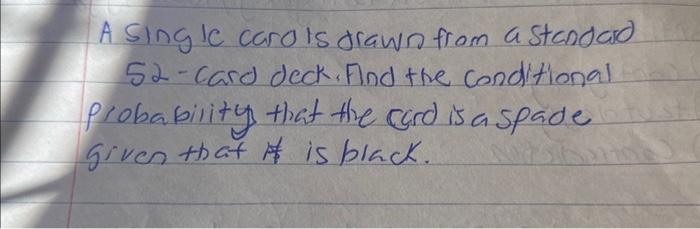 A single card is drawn from a standad
52-card deck. Find the conditional
probability that the card is a spade
given that it is black.